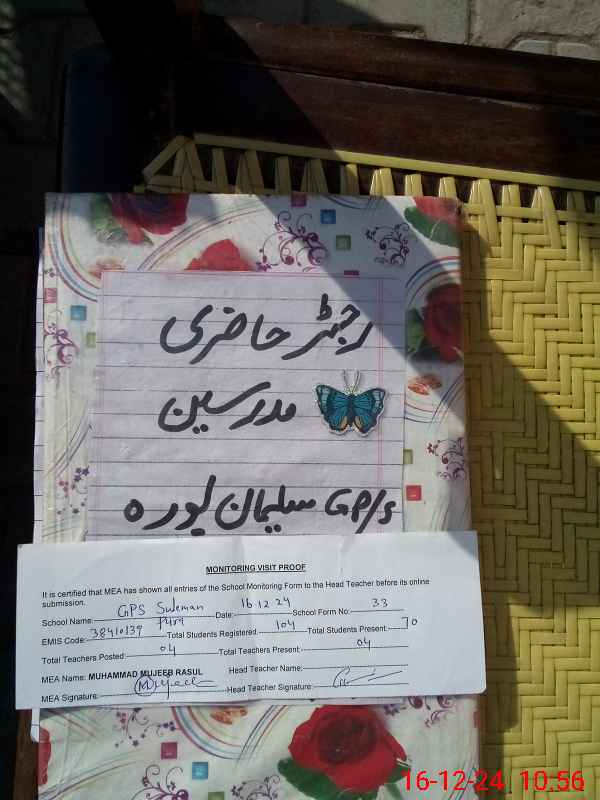 رجسٹر حاضری
مدرسین
GP/S سلیمان پورہ
MONITORING VISIT PROOF
It is certified that MEA has shown all entries of the School Monitoring Form to the Head Teacher before its online
submission.
School Name: GPS Suleman Pura Date: 16 12 24 School Form No: 33
EMIS Code: 38410139 Total Students Registered 104 Total Students Present: 70
Total Teachers Posted: 04 Total Teachers Present: 04
MEA Name: MUHAMMAD MUJEEB RASUL Head Teacher Name:
MEA Signature: Mujeeb Head Teacher Signature:
16-12-24 10:56